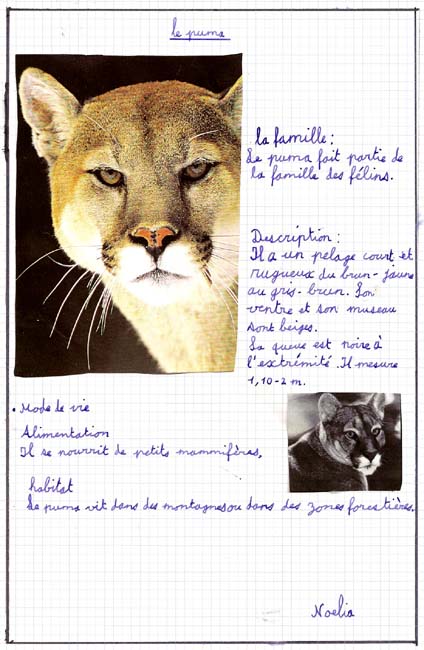 le puma
la famille :
Le puma fait partie de
la famille des félins.
Description :
Il a un pelage court et
rugueux du brun-jaune
au gris-brun. Son
ventre et son museau
sont beiges.
Sa queue est noire à
l'extrémité. Il mesure
1,10-2 m.
• Mode de vie
Alimentation
Il se nourrit de petits mammifères.
habitat
Le puma vit dans des montagnes ou dans des zones forestières.
Noelia